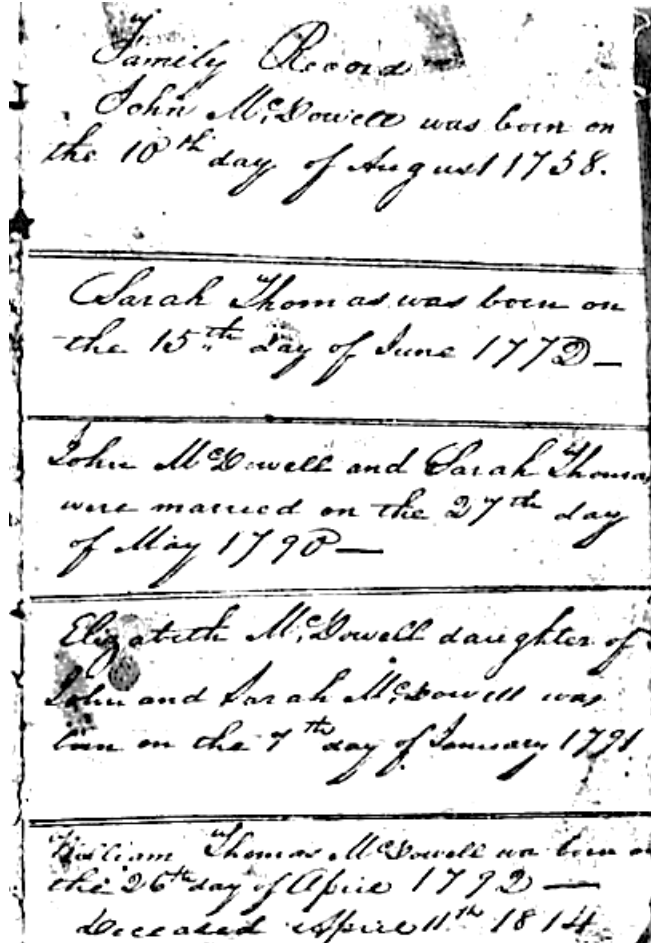 Family Record
John McDowell was born on
the 10th day of August 1758.
Sarah Thomas was born on
the 15th day of June 1772—
John McDowell and Sarah Thomas
were married on the 27th day
of May 1790—
Elizabeth McDowell daughter of
John and Sarah McDowell was
born on the 7th day of January 1791.
William Thomas McDowell was born on
the 26th day of April 1792—
Deceased April 11th 1814